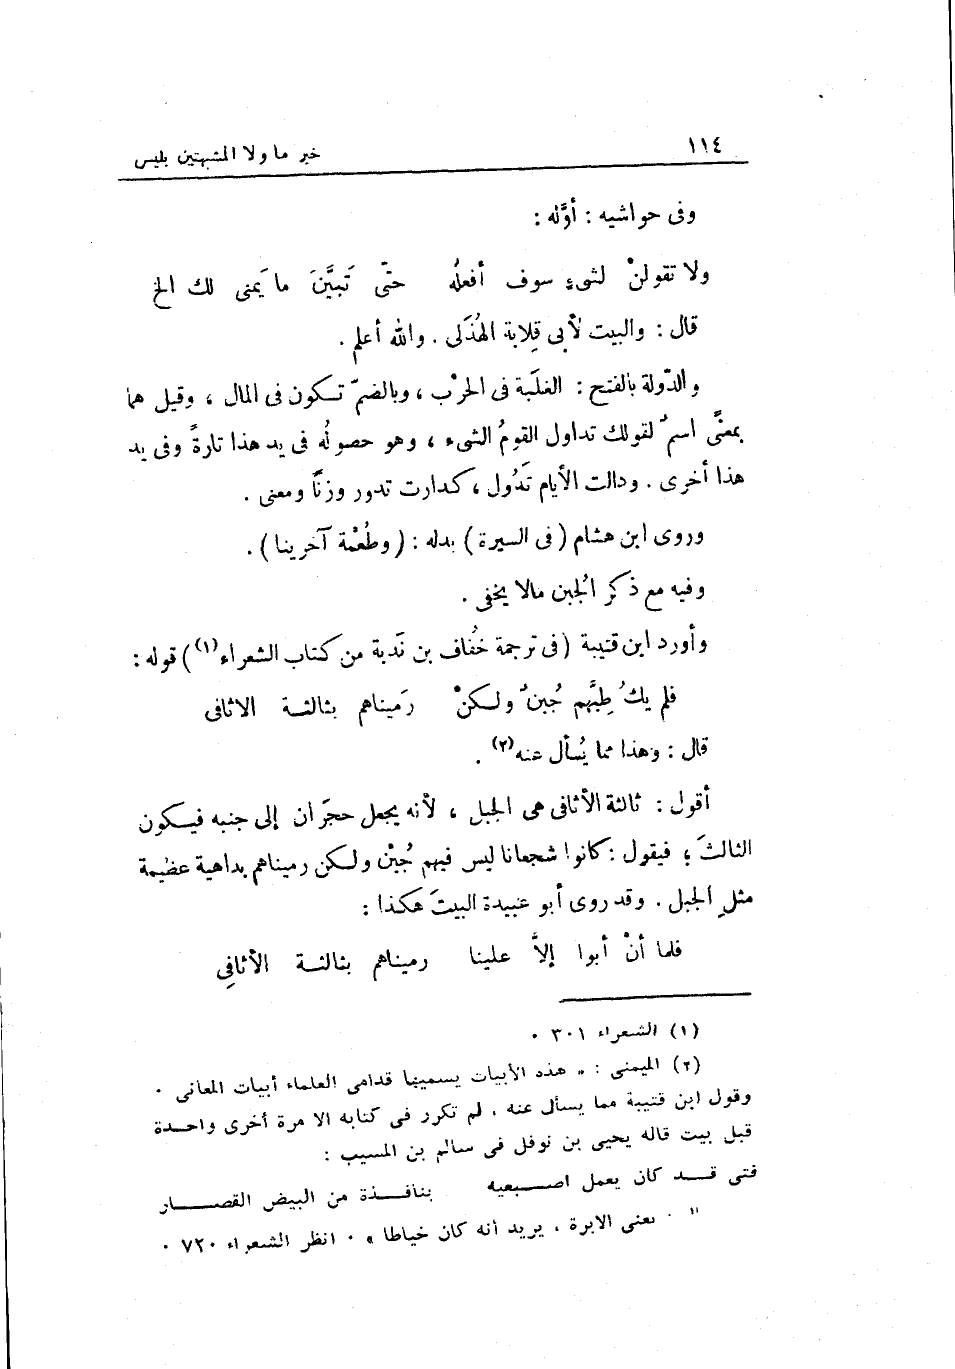 ١١٤ خبر ما ولا المشبهتين بليس
وفى حواشيه : أوَّله :
ولا تقولنْ لشىءٍ سوف أفعلُه حتّى تَبيَّنَ ما يَمنى لك الخ
قال : والبيت لأبى قِلابة الهُذَلى . والله أعلم .
والدّولة بالفتح : الغلَبة فى الحرْب ، وبالضمّ تـكون فى المال ، وقيل هما
بمعنًى اسمٌ لقولك تداول القومُ الشىء ، وهو حصولُه فى يد هذا تارةً وفى يد
هذا أخرى . ودالت الأيام تَدُول ، كدارت تدور وزنًا ومعنى .
وروى ابن هشام (فى السيرة) بدله : (وطُعْمة آخرينا) .
وفيه مع ذكر الجبن مالا يخفى .
وأورد ابن قتيبة (فى ترجمة خُفاف بن نَدبة من كتاب الشعراء(١)) قوله :
فلم يكُ طِبَّهم جُبنٌ ولـكنْ رَمَيناهم بثالثـة الاثافى
قال : وهذا مما يُسأل عنه(٢) .
أقول : ثالثة الأثافى هى الجبل ، لأنه يجعل حجَران إلى جنبه فيـكون
الثالثَ ؛ فيقول : كانوا شجعانا ليس فيهم جُبْن ولـكن رميناهم بداهية عظيمة
مثلِ الجبل . وقد روى أبو عبيدة البيتَ هكذا :
فلما أنْ أبوا إلاَّ علينا رميناهم بثالثـة الأثافِى
(١) الشعراء ٣٠١ .
(٢) الميمنى : « هذه الأبيات يسميها قدامى العلماء أبيات المعانى .
وقول ابن قتيبة مما يسأل عنه ، لم تكرر فى كتابه الا مرة أخرى واحـدة
قبل بيت قاله يحيى بن نوفل فى سالم بن المسيب :
فتى قـــد كان يعمل اصـــبعيه بنافـــذة من البيض القصــــار
يعنى الابرة ، يريد أنه كان خياطا » . انظر الشعراء ٧٢٠ .